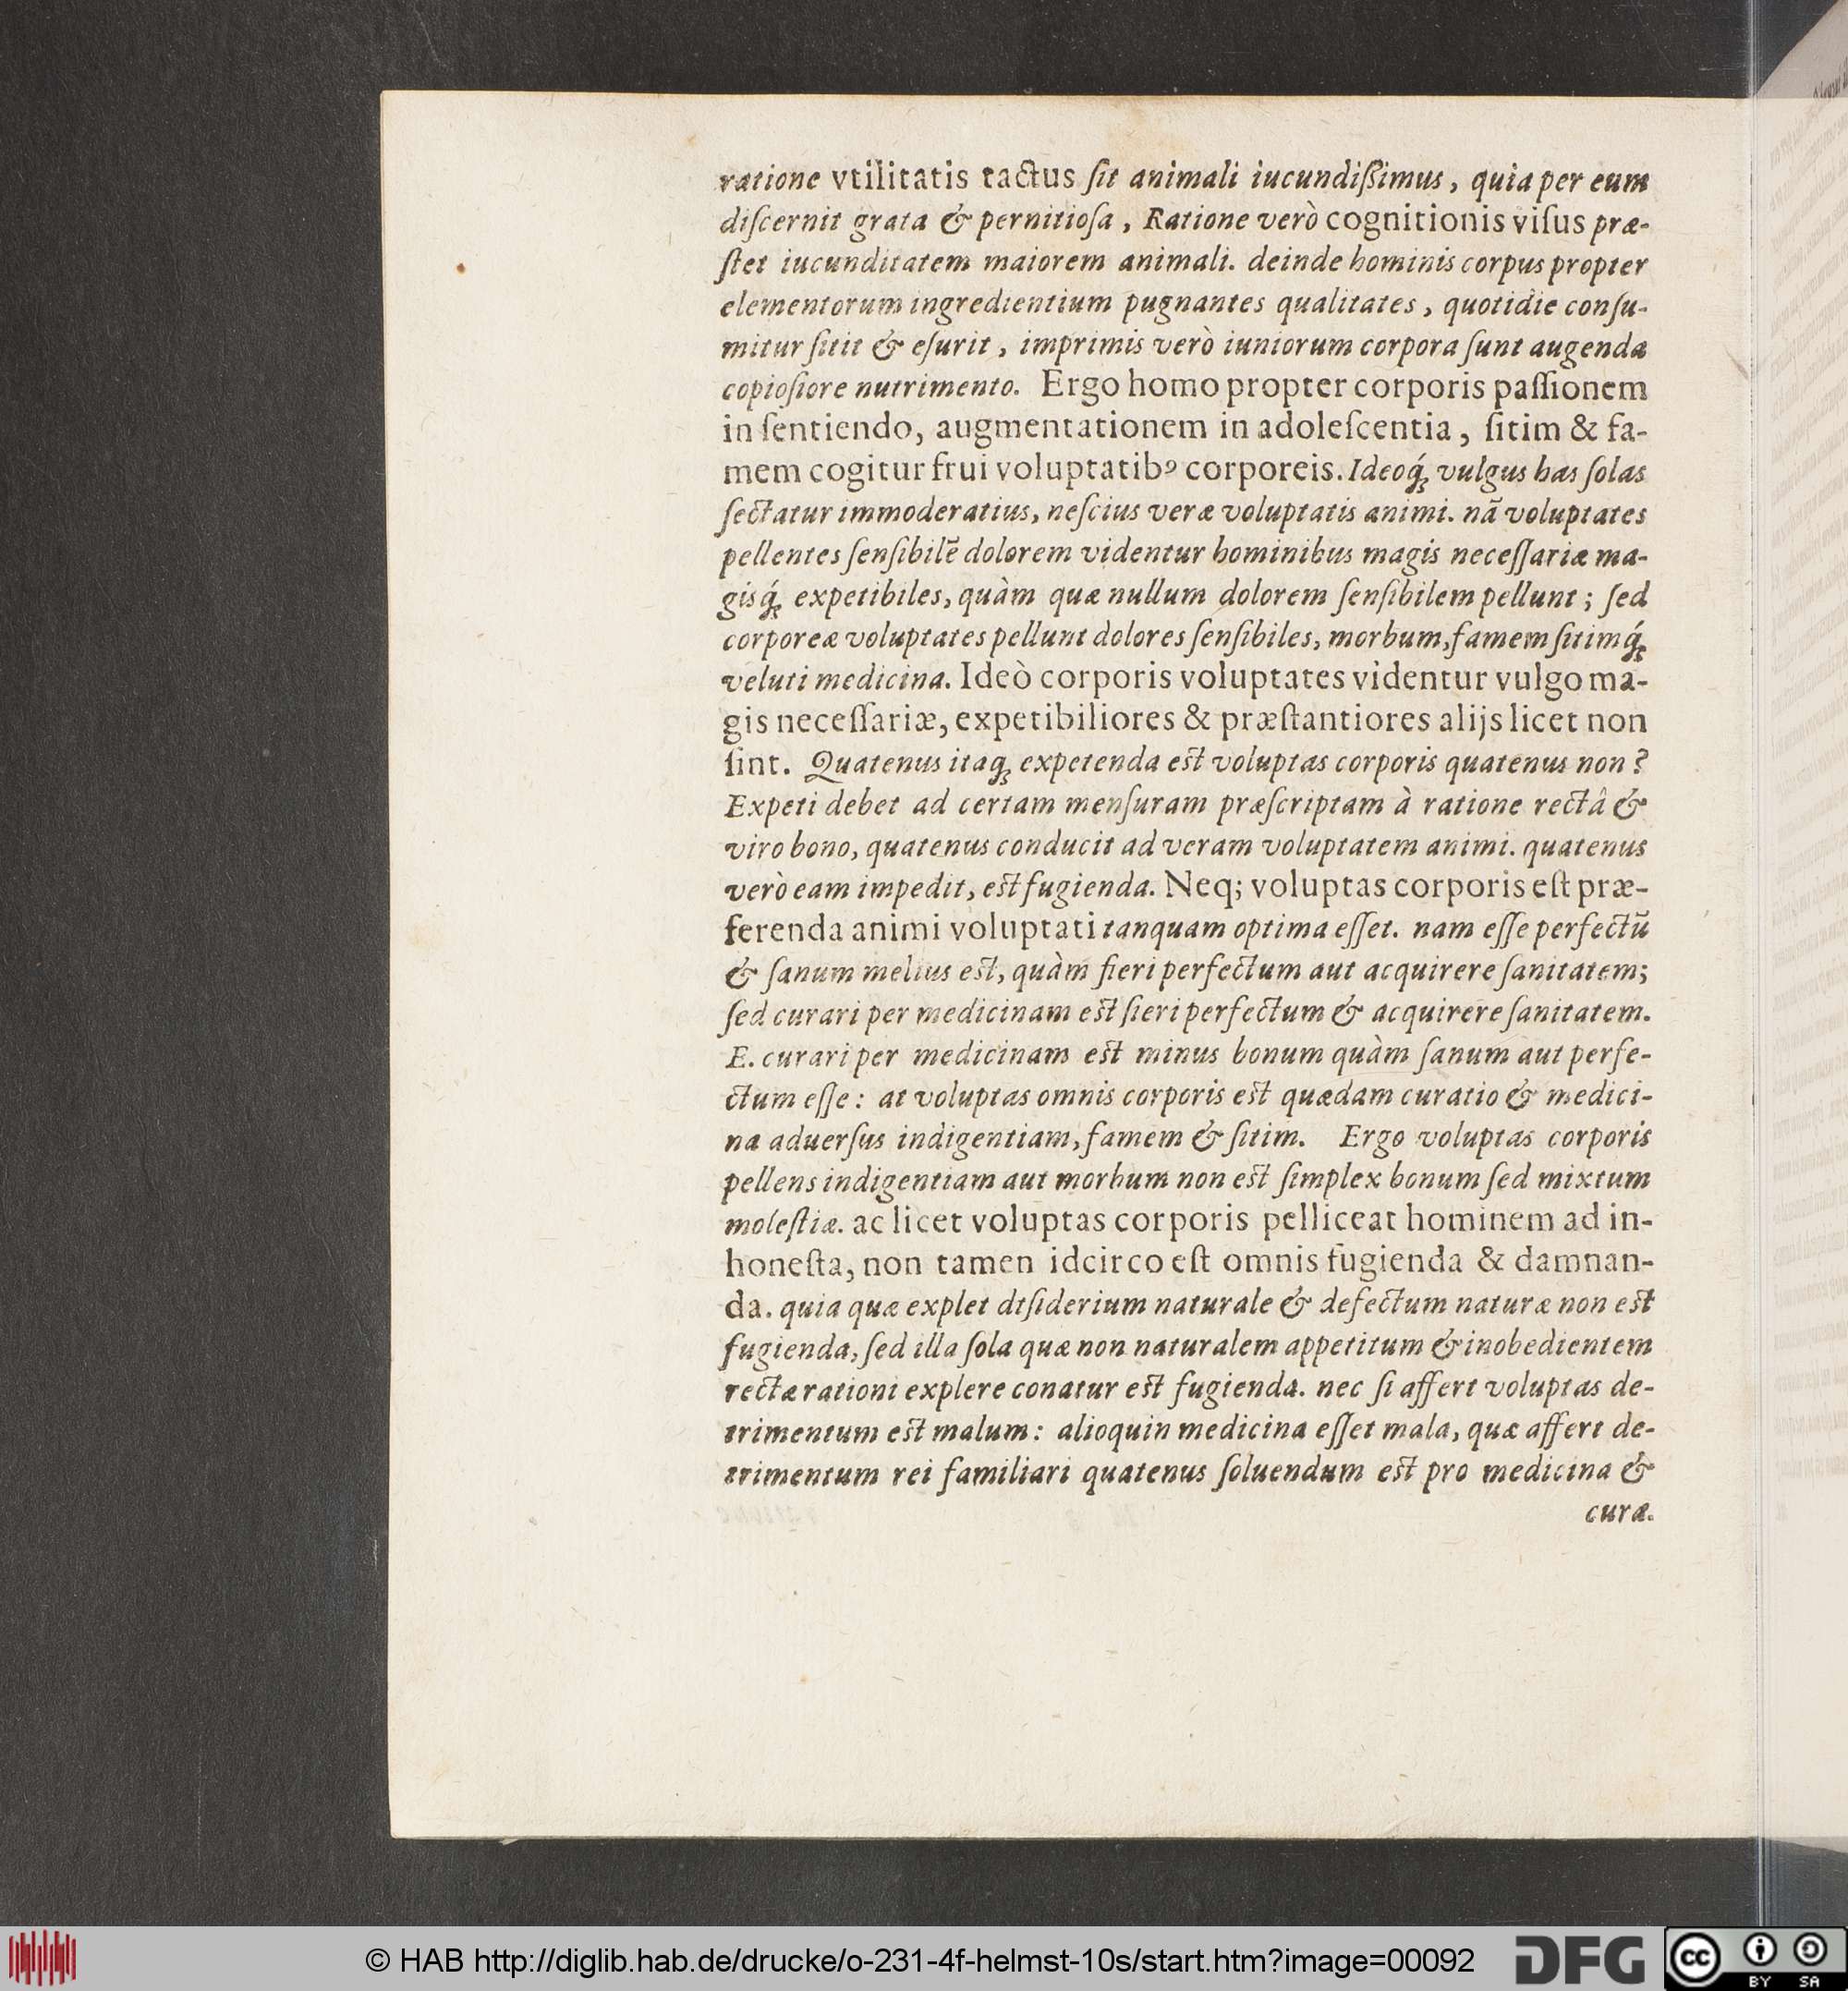 ratione vtilitatis tactus ſit animali iucundißimus, quia per eum
diſcernit grata & pernitioſa, Ratione verò cognitionis viſus præ-
ſtet iucunditatem maiorem animali. deinde hominis corpus propter
elementorum ingredientium pugnantes qualitates, quotidie conſu-
mitur ſitit & eſurit, imprimis verò iuniorum corpora ſunt augenda
copioſiore nutrimento. Ergo homo propter corporis paſſionem
in ſentiendo, augmentationem in adoleſcentia, ſitim & fa-
mem cogitur frui voluptatibꝰ corporeis. Ideoq́; vulgus has ſolas
ſectatur immoderatius, neſcius veræ voluptatis animi. nã voluptates
pellentes ſenſibilẽ dolorem videntur hominibus magis neceſſariæ ma-
gisq́; expetibiles, quàm quæ nullum dolorem ſenſibilem pellunt; ſed
corporeæ voluptates pellunt dolores ſenſibiles, morbum, famem ſitimq́;
veluti medicina. Ideò corporis voluptates videntur vulgo ma-
gis neceſſariæ, expetibiliores & præſtantiores alijs licet non
ſint. Quatenus itaq; expetenda est voluptas corporis quatenus non?
Expeti debet ad certam menſuram præſcriptam à ratione rectâ &
viro bono, quatenus conducit ad veram voluptatem animi. quatenus
verò eam impedit, est fugienda. Neq; voluptas corporis eſt præ-
ferenda animi voluptati tanquam optima eſſet. nam eſſe perfectũ
& ſanum melius est, quàm fieri perfectum aut acquirere ſanitatem;
ſed curari per medicinam est fieri perfectum & acquirere ſanitatem.
E. curari per medicinam est minus bonum quàm ſanum aut perfe-
ctum eſſe: at voluptas omnis corporis est quædam curatio & medici-
na aduerſus indigentiam, famem & ſitim. Ergo voluptas corporis
pellens indigentiam aut morbum non est ſimplex bonum ſed mixtum
moleſtiæ. ac licet voluptas corporis pelliceat hominem ad in-
honeſta, non tamen idcirco eſt omnis fugienda & damnan-
da. quia quæ explet dtſiderium naturale & defectum naturæ non est
fugienda, ſed illa ſola quæ non naturalem appetitum & inobedientem
rectæ rationi explere conatur est fugienda. nec ſi affert voluptas de-
trimentum est malum: alioquin medicina eſſet mala, quæ affert de-
trimentum rei familiari quatenus ſoluendum est pro medicina &
curæ.
© HAB http://diglib.hab.de/drucke/o-231-4f-helmst-10s/start.htm?image=00092
DFG
cc BY SA